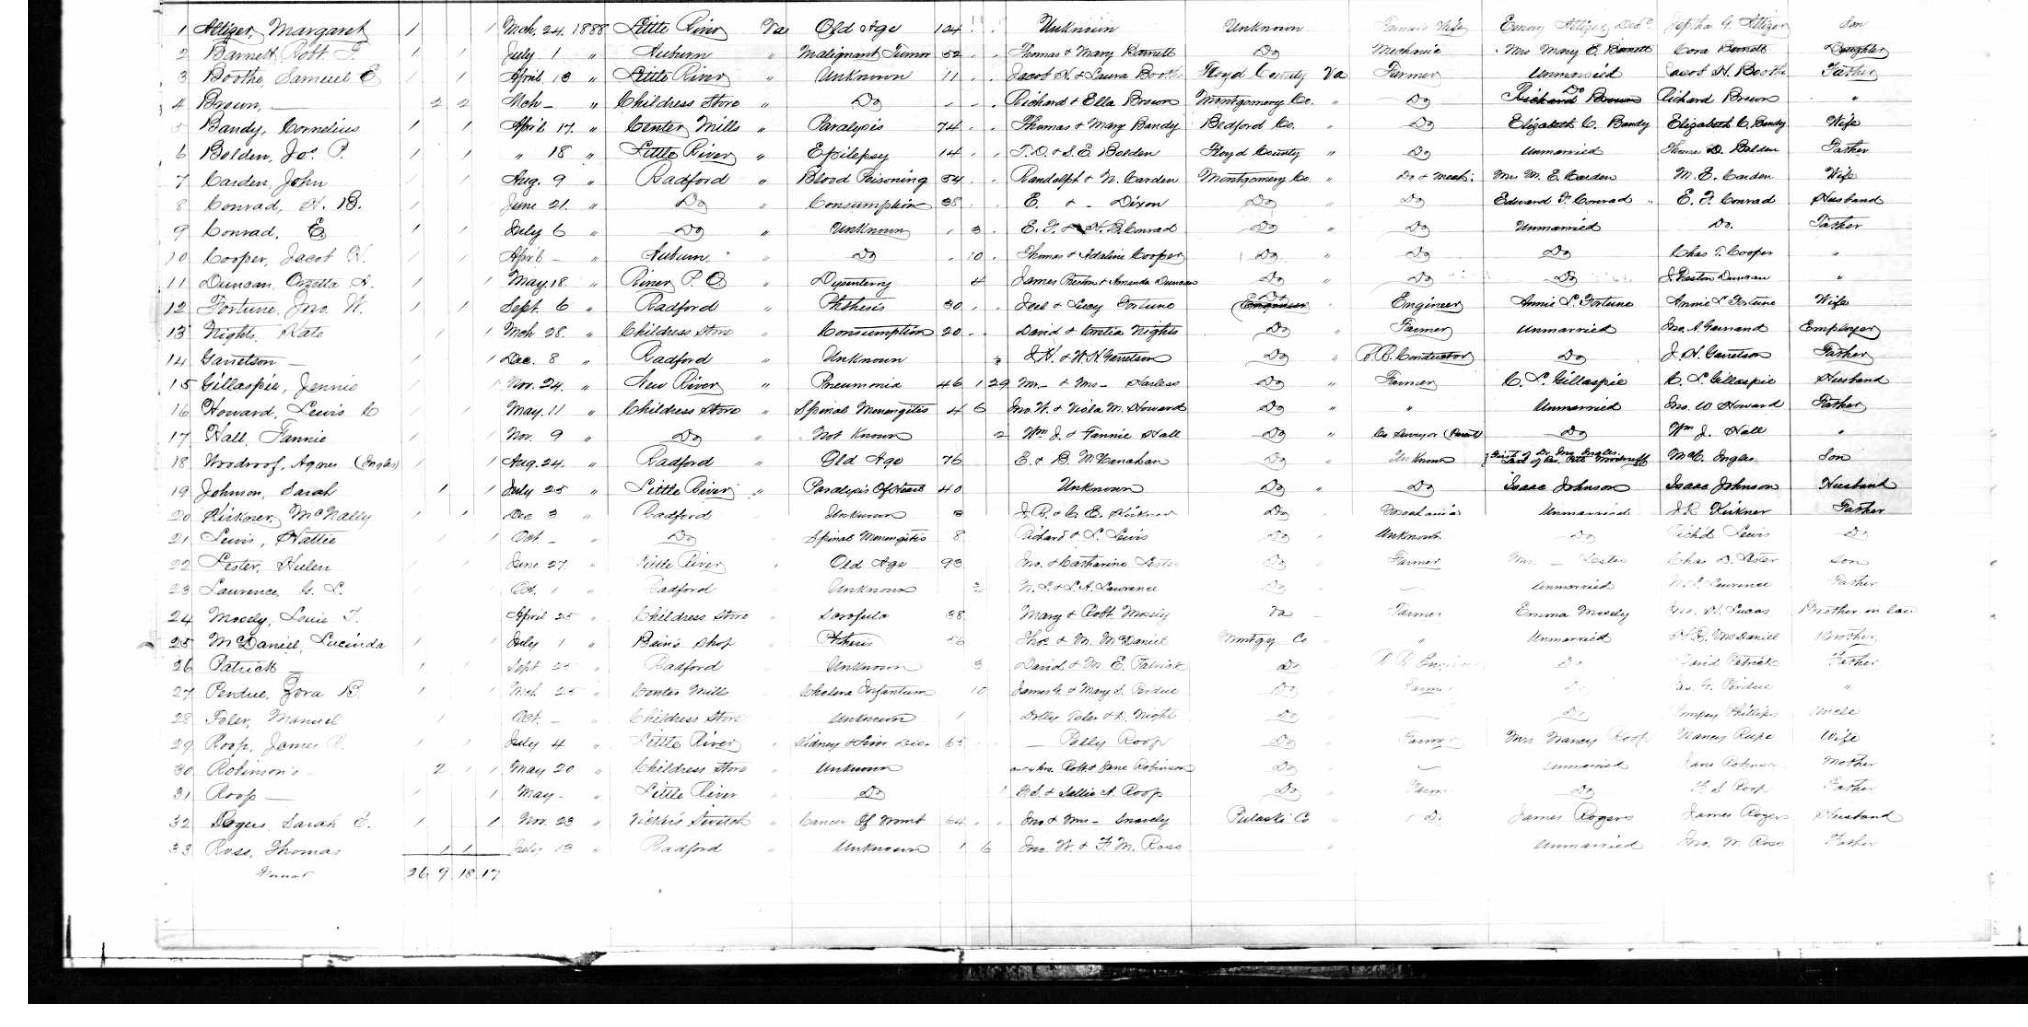 1 Altizer, Margaret 1 1 Mch. 24. 1888 Little River Va Old Age 104 Unknown Unknown Farmers Wife Emory Altizer Decd. Jeptha G. Altizer Son
2 Barnett, Robt. T. 1 1 July 1 " Auburn " Malignant Tumor 52 Thomas & Mary Barnett Do Mechanic Mrs Mary E Barnett Cora Barnett Daughter
3 Boothe, Samuel E 1 1 April 18 " Little River " Unknown 11 Jacob H. & Laura Boothe Floyd County Va Farmer Unmarried Jacob H. Boothe Father
4 Brown, — 2 2 Mch — " Childress Store " Do Richard & Ella Brown Montgomery Co. " Do Do Richard Brown "
5 Bandy, Cornelius 1 1 April 17. " Center Mills " Paralysis 74 Thomas & Mary Bandy Bedford Co. " Do Elizabeth C. Bandy Elizabeth C. Bandy Wife
6 Bolden, Jos. P. 1 1 " 18 " Little River " Epilepsy 14 T. D. & S. E. Bolden Floyd County " Do Unmarried Thomas D. Bolden Father
7 Carden, John 1 1 Aug. 9 " Radford " Blood Poisoning 54 Randolph & N. Carden Montgomery Co. " Do & Mech. Mrs M. E. Carden M. E. Carden Wife
8 Conrad, H. B. 1 1 June 21. " Do " Consumption 38 E. & - Dixon Do " Do Edward F. Conrad E. F. Conrad Husband
9 Conrad, E 1 1 July 6 " Do " Unknown 3 E. F. & H. B. Conrad Do " Do Unmarried Do. Father
10 Cooper, Jacob H. 1 1 April — Auburn " Do 10 Thomas & Adaline Cooper Do " Do Do Chas T. Cooper "
11 Duncan, Ozetta A. 1 1 May 18 " River P. O " Dysentery 4 James Preston & Amanda Duncan Do " Do Do J Preston Duncan "
12 Fortune, Jno. W. 1 1 Sept. 6 " Radford " Phthisis 30 Joel & Lucy Fortune Do Engineer Annie L. Fortune Annie L Fortune Wife
13 Nights, Kate 1 1 Mch 28. " Childress Store " Consumption 20 David & Nights Do " Farmer Unmarried Jno. A. Employer
14 Garretson — 1 Dec. 8 " Radford " Unknown J. H. & W. H Garretson Do " R. R. Conductor Do J. H. Garretson Father
15 Gillaspie, Jennie 1 1 Nov. 24. " New River " Pneumonia 46 1 29 Mr — & Mrs — Harless Do " Farmer C. L. Gillaspie C. L. Gillaspie Husband
16 Howard, Lewis C 1 1 May. 11 " Childress Store " Spinal Menengitis 4 6 Jno. W. & Viola M. Howard Do " " Unmarried Jno. W Howard Father
17 Hall, Fannie 1 1 Nov. 9 " Do " Not Known 2 Wm J. & Fannie Hall Do " Co Surveyor Do Wm J. Hall "
18 Woodroof, Agnes (Ingles) 1 1 Aug. 24. " Radford " Old Age 76 E. & B. McCanahan Do " Unknown Ingles Son
19 Johnson, Sarah 1 1 July 25 " Little River " Paralysis Of Heart 40 Unknown Do " Do Isaac Johnson Isaac Johnson Husband
20 Kirkner, McNally 1 1 Dec 3 " Radford Unknown 3 J. R. & C. E. Kirkner Do " Mechanic Unmarried J. R. Kirkner Father
21 Lewis, Hattie 1 1 Oct. — " Do Spinal Menengitis 8 Richard & L. Lewis Do Unknown Do Richd Lewis Do
22 Lester, Hulen 1 1 June 27 " Little River Old Age 93 Jno. & Catharine Lester Do Farmer Mrs. — Lester Chas D. Lester Son
23 Lawrence, G. L. 1 1 Oct. 1 " Radford Unknown N. L. & L. A. Lawrence Do Unmarried N. L. Lawrence Father
24 Mosely, Louie T. 1 1 April 25 " Childress Store Scrofula 38 Mary & Robt Mosely Va Farmer Emma Mosely Jno. H. Lucas Brother in law
25 McDaniel, Lucinda 1 1 July 1 " Bain's Shop Pthisis 56 Thos. & M. McDaniel Montgy Co " Unmarried McDaniel Brother
26 Patrick — 1 1 Sept 25 " Radford Unknown 3 David & M. E. Patrick Do R R Engineer Do David Patrick Father
27 Perdue, Zora B. 1 1 Mch 25 " Center Mill Cholera Infantum 10 James G. & Mary S. Perdue Do Farmer Do Jas. G. Perdue "
28 Poler, Manuel 1 1 Oct. — " Childress Store Unknown 1 Dolly Poler & D. Night Do — Do Pompey Phillips Uncle
29 Roop, James R. 1 1 July 4 " Little River " Kidney & Liver Dis. 65 — Polly Roop Do Farmer Mrs Nancy Roop Nancy Rupe Wife
30 Robinson's — 2 1 1 May 20 " Childress Store " Unknown Robt & Jane Robinson Do — Unmarried Jane Robinson Mother
31 Roop — 1 1 May — " Little River " Do 1 G. S. & Sallie A. Roop Do Farm Do G. S Roop Father
32 Rogers, Sarah E. 1 1 Nov. 23 " Vicker's Switch " Cancer Of Womb 64 Jno & Mrs — Snavely Pulaski Co " Do James Rogers James Rogers Husband
33 Ross, Thomas 1 1 July 13 " Radford " Unknown 1 6 Jno. W. & F. M. Ross " Unmarried Jno. W. Ross Father
26 9 18 17